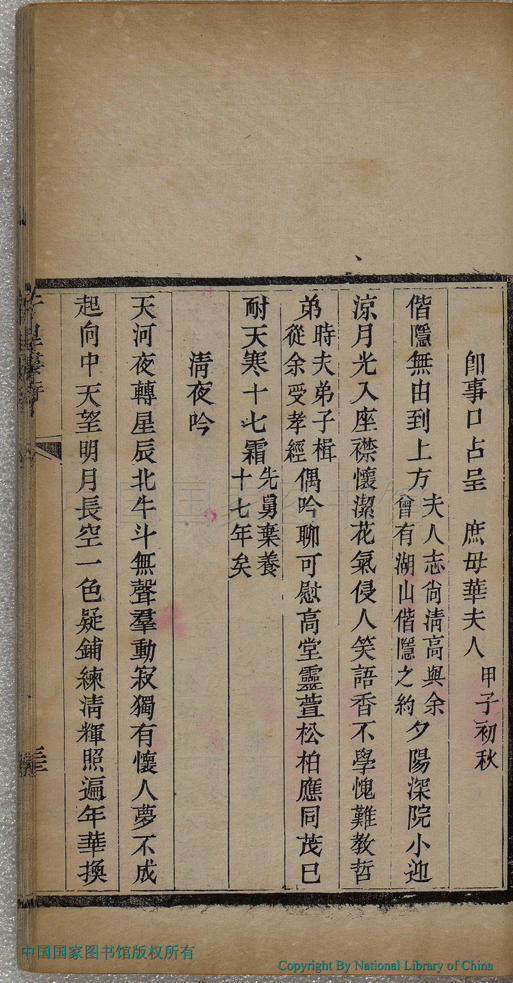 卽事口占呈　庶母華夫人　甲子初秋
偕隱無由到上方夫人志尙淸高與余曾有湖山偕隱之約夕陽深院小迎
涼月光入座襟懷潔花氣侵人笑語香不學愧難教哲
弟時夫弟子楫從余受孝經偶吟聊可慰高堂靈萱松柏應同茂已
耐天寒十七霜先舅棄養十七年矣
淸夜吟
天河夜轉星辰北牛斗無聲羣動寂獨有懷人夢不成
起向中天望明月長空一色疑鋪練淸輝照遍年華換
中国国家图书馆版权所有
Copyright By National Library of China